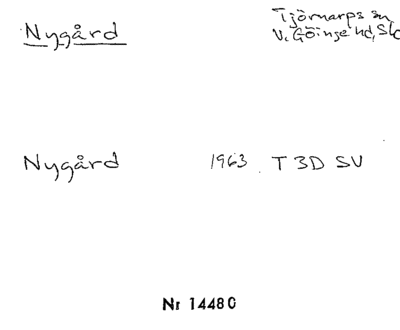 Nygård
Tjörnarps sn
V. Göinge hd, Sk
Nygård 1963 T 3D SV
Nr 14480